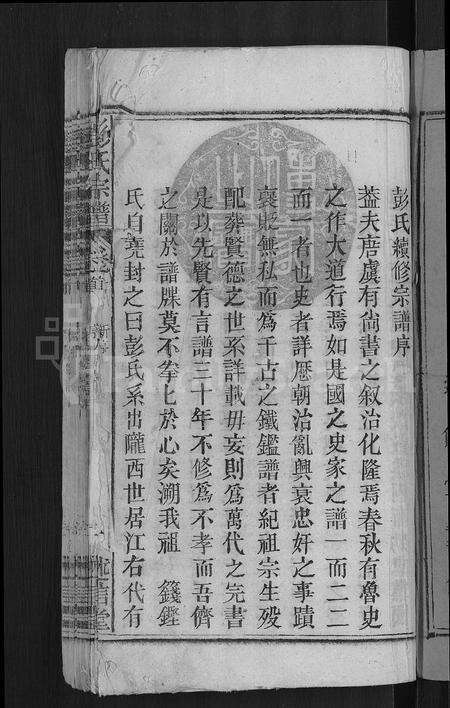 彭氏續修宗譜序
蓋夫唐虞有尚書之叙治化隆焉春秋有魯史
之作大道行焉如是國之史家之譜一而二二
而一者也史者詳歷朝治亂興衰忠奸之事蹟
褒貶無私而為千古之鐵鑑譜者紀祖宗生歿
配葬賢德之世系詳載毋妄則為萬代之完書
是以先賢有言譜三十年不修為不孝而吾儕
之關於譜牒莫不拳匕於心矣溯我祖 籛鏗
氏自堯封之曰彭氏系出隴西世居江右代有
彭氏宗譜 卷之首